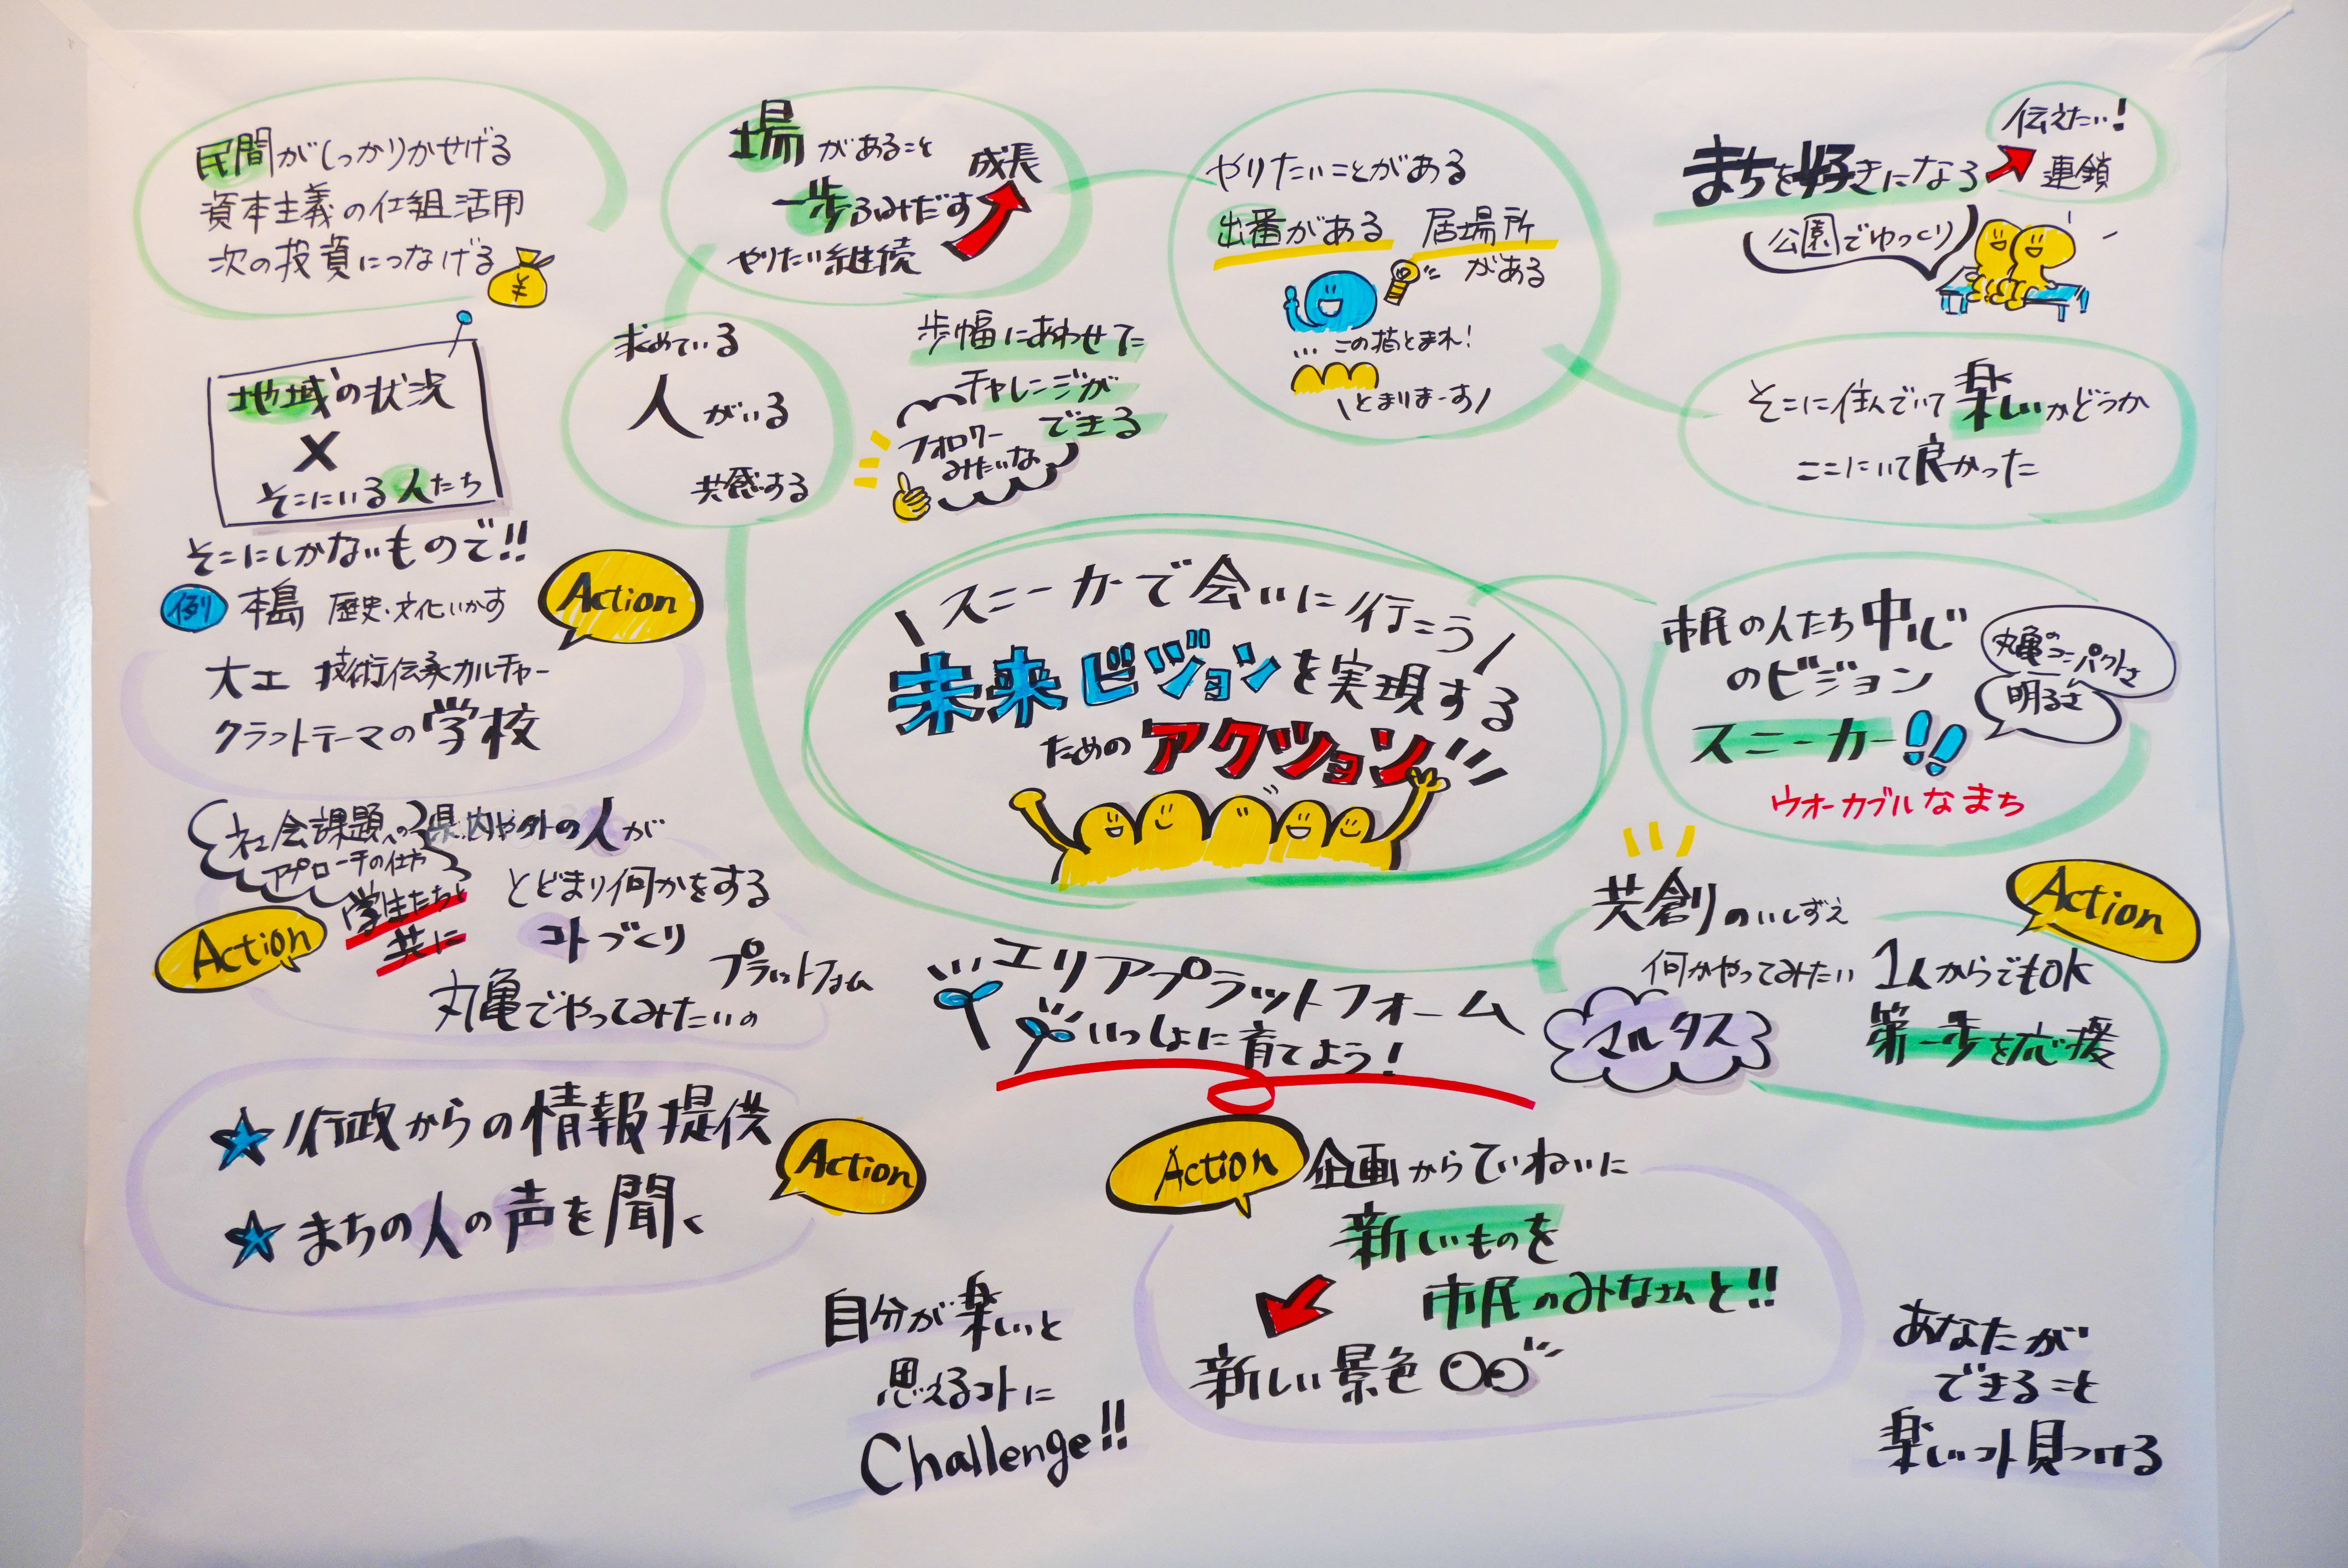 民間がしっかりかせげる
資本主義の仕組活用
次の投資につなげる
¥
場があること
一歩ふみだす
成長
やりたい継続
やりたいことがある
出番がある
居場所
がある
…この指とまれ!
\とまりまーす/
まちを好きになる
伝えたい!
連鎖
公園でゆっくり
地域の状況
×
そこにいる人たち
そこにしかないもので!!
例 本島 歴史・文化いかす
Action
大工 技術伝承カルチャー
クラフトテーマの学校
求めている
人がいる
共感する
歩幅にあわせて
チャレンジが
できる
フォロワー
みたいな
そこに住んでいて楽しいかどうか
ここにいて良かった
\スニーカーで会いに行こう/
未来ビジョンを実現する
ためのアクション
市民の人たち中心
のビジョン
スニーカー
ウオーカブルなまち
丸亀のコンパクトさ
明るさ
社会課題への
アプローチの仕方
学生たちと
共に
Action
県内や外の人が
とどまり何かをする
コトづくり
プラットフォーム
丸亀でやってみたいの
エリアプラットフォーム
いっしょに育てよう!
共創のいしずえ
何かやってみたい
1人からでもOK
第一歩を応援
マルタス
Action
★行政からの情報提供
★まちの人の声を聞く
Action
Action
企画からていねいに
新しいものを
市民のみなさんと!!
新しい景色
自分が楽しいと
思えるコトに
Challenge!!
あなたが
できること
楽しいコト見つける